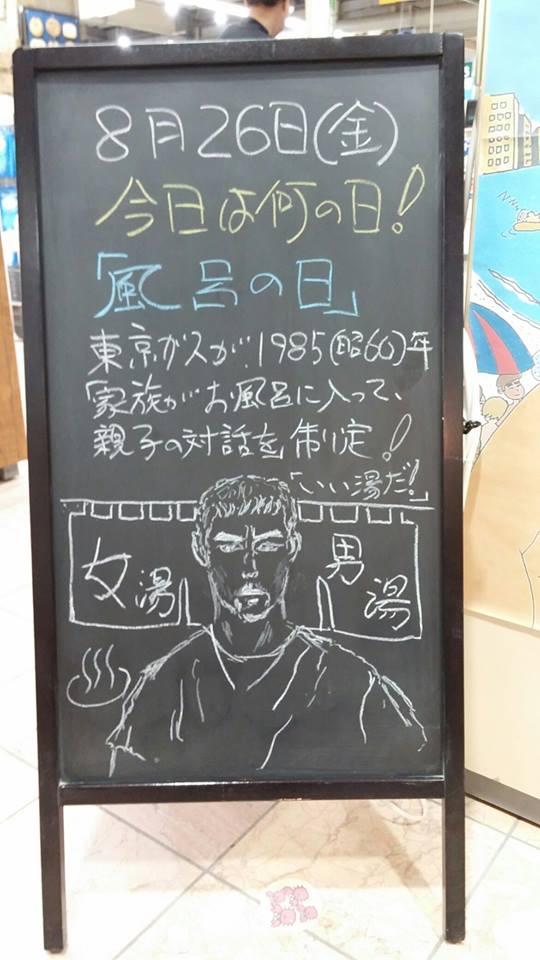 8月26日(金)
今日は何の日!
「風呂の日」
東京ガスが、1985(昭60)年
「家族がお風呂に入って、
親子の対話を」制定!
「いい湯だ!」
女湯
男湯